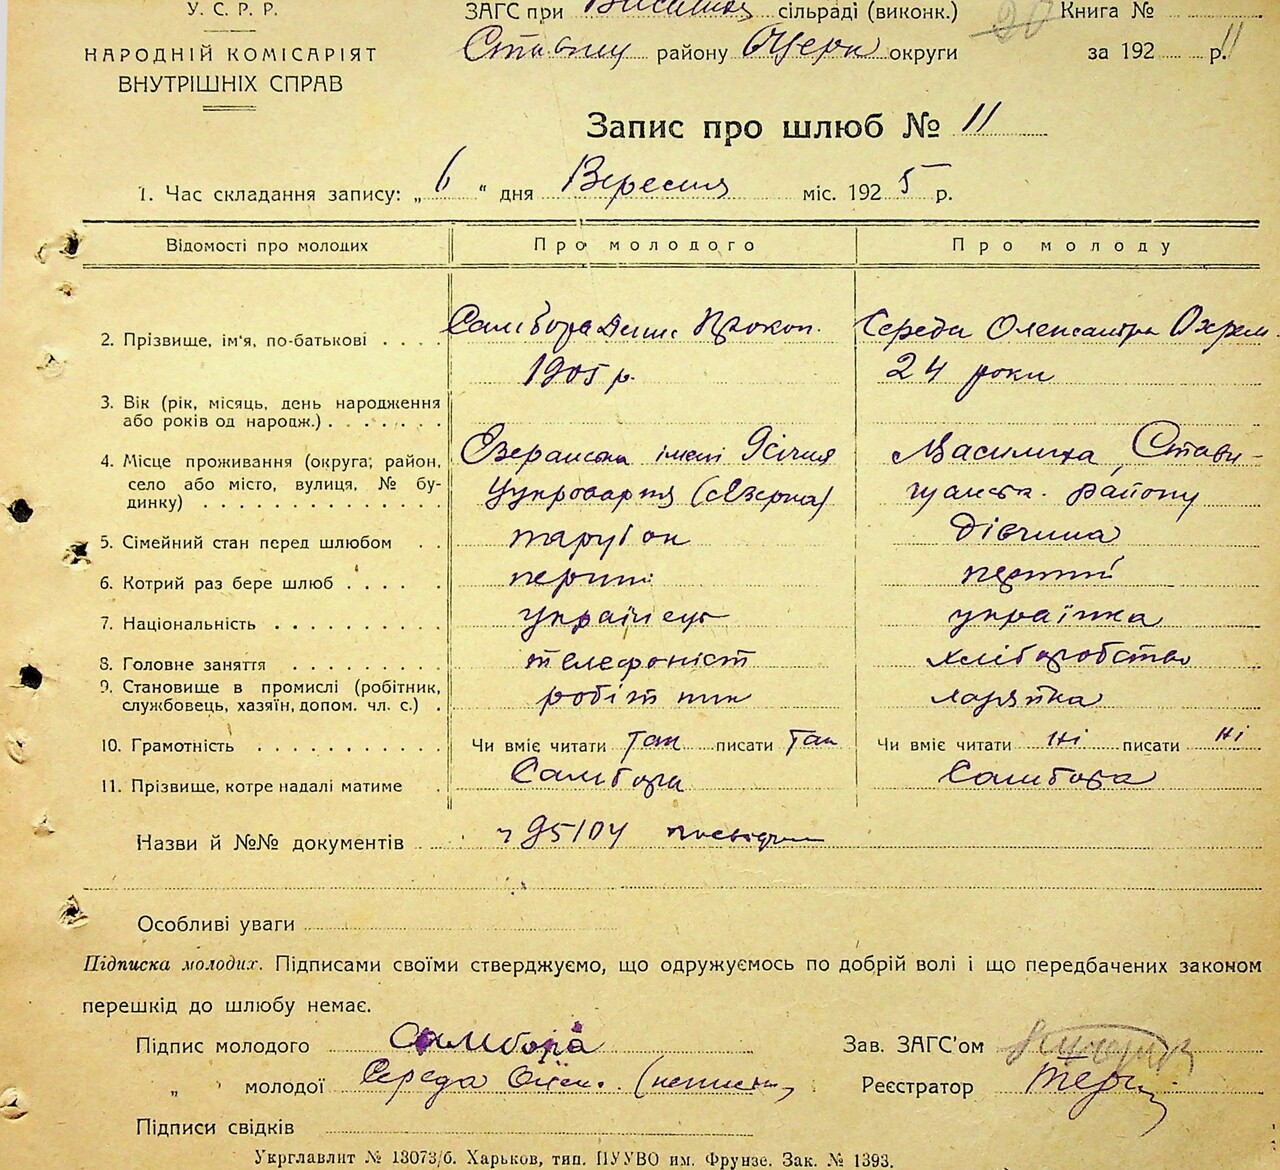 У. С. Р. Р.
НАРОДНІЙ КОМІСАРІЯТ
ВНУТРІШНІХ СПРАВ
ЗАГС при сільраді (виконк.) 20 Книга №
району округи за 192 р. 11
Запис про шлюб № 11
1. Час складання запису: „ 6 “ дня Вересня міс. 192 5 р.
Відомості про молодих Про молодого Про молоду
2. Прізвище, ім'я, по-батькові . . . . Самбора Денис Прокоп. Середа Олександра Охрем.
1905 р. 24 роки
3. Вік (рік, місяць, день народження
або років од народж.) . . . . . . .
4. Місце проживання (округа, район, імені 9 січня Василиха, Стави-
село або місто, вулиця, № бу- Цукроварня щанськ. району
динку) . . . . . . . . . . . . .
5. Сімейний стан перед шлюбом . . парубок дівчина
6. Котрий раз бере шлюб . . . . . перший перший
7. Національність . . . . . . . . . українець українка
8. Головне заняття . . . . . . . . телефоніст хліборобство
9. Становище в промислі (робітник,
службовець, хазяїн, допом. чл. с.) . робітник
10. Грамотність . . . . . . . . . . . Чи вміє читати так писати так Чи вміє читати ні писати ні
11. Прізвище, котре надалі матиме . Самбора Самбора
Назви й №№ документів 95104
Особливі уваги
Підписка молодих. Підписами своїми стверджуємо, що одружуємось по добрій волі і що передбачених законом
перешкід до шлюбу немає.
Підпис молодого Самбора Зав. ЗАГС'ом
„ молодої Середа Реєстратор
Підписи свідків
Укрглавлит № 13073/б. Харьков, тип. ПУУВО им. Фрунзе. Зак. № 1393.